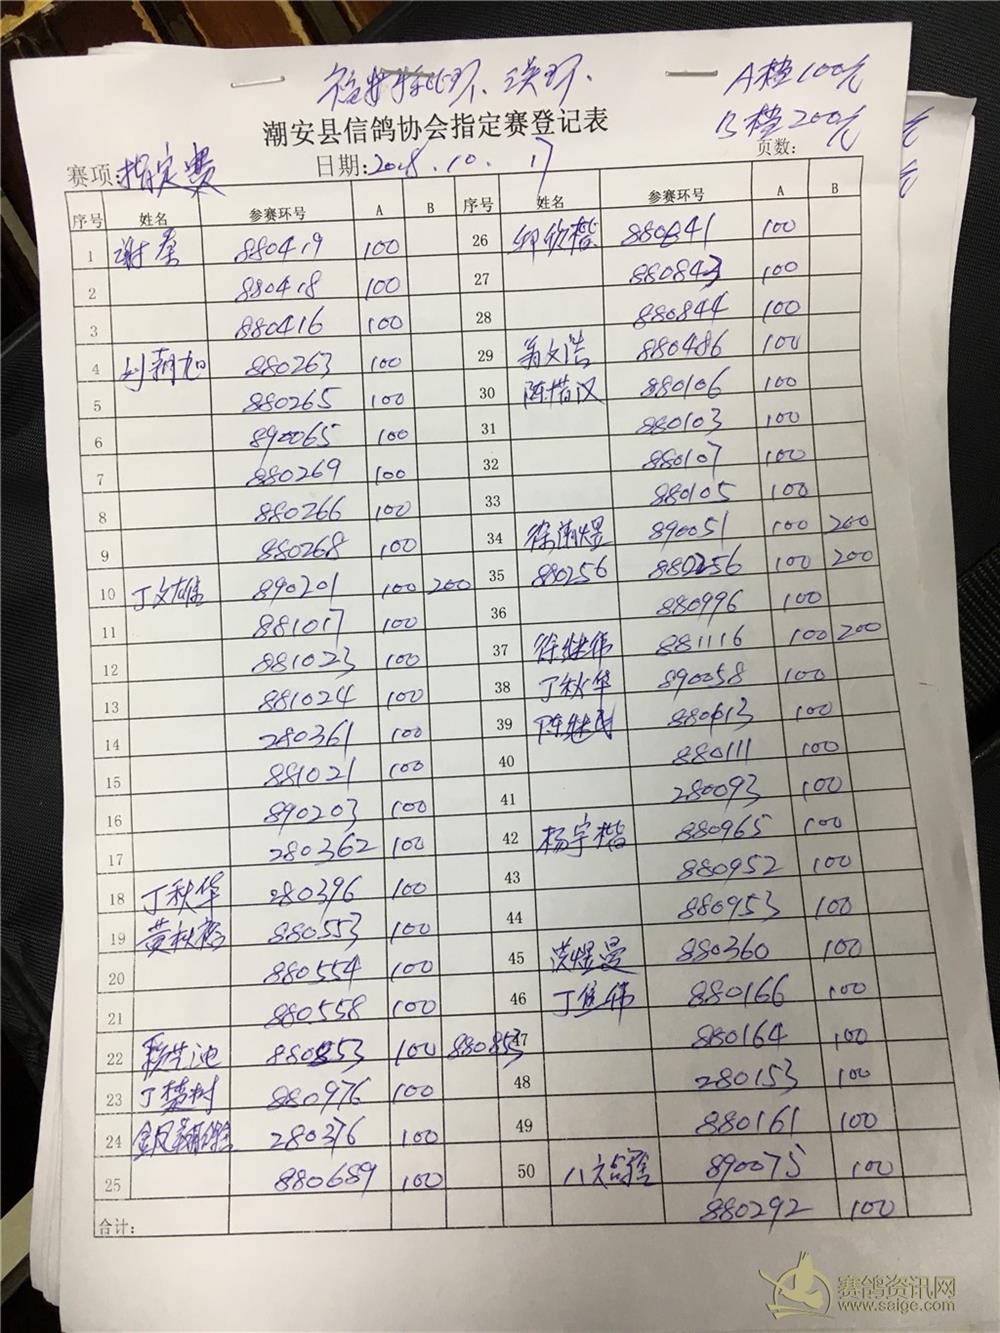 A档100元
潮安县信鸽协会指定赛登记表
B档200元
赛项:指定赛 日期:2018.10.17 页数:
序号 姓名 参赛环号 A B 序号 姓名 参赛环号 A B
1 谢奎 880419 100 26 880841 100
2 880418 100 27 880843 100
3 880416 100 28 880844 100
4 刘朝旭 880263 100 29 翁文浩 880486 100
5 880265 100 30 陈惜汉 880106 100
6 890065 100 31 880103 100
7 880269 100 32 880107 100
8 880266 100 33 880105 100
9 880268 100 34 徐潮煜 890051 100 200
10 丁文雄 890201 100 200 35 880256 880256 100 200
11 881017 100 36 880996 100
12 881023 100 37 徐继伟 881116 100 200
13 881024 100 38 丁秋华 890058 100
14 280361 100 39 陈继 880613 100
15 881021 100 40 880111 100
16 890203 100 41 280093 100
17 280362 100 42 杨宇楷 880965 100
18 丁秋华 280396 100 43 880952 100
19 黄秋 880553 100 44 880953 100
20 880554 100 45 煜曼 880360 100
21 880558 100 46 丁 伟 880166 100
22 880853 100 880853 47 880164 100
23 丁楚树 880976 100 48 280153 100
24 金凤翔 280376 100 49 880161 100
25 880689 100 50 八六鸽舍 890075 100
合计: 880292 100
赛鸽资讯网
www.saige.com